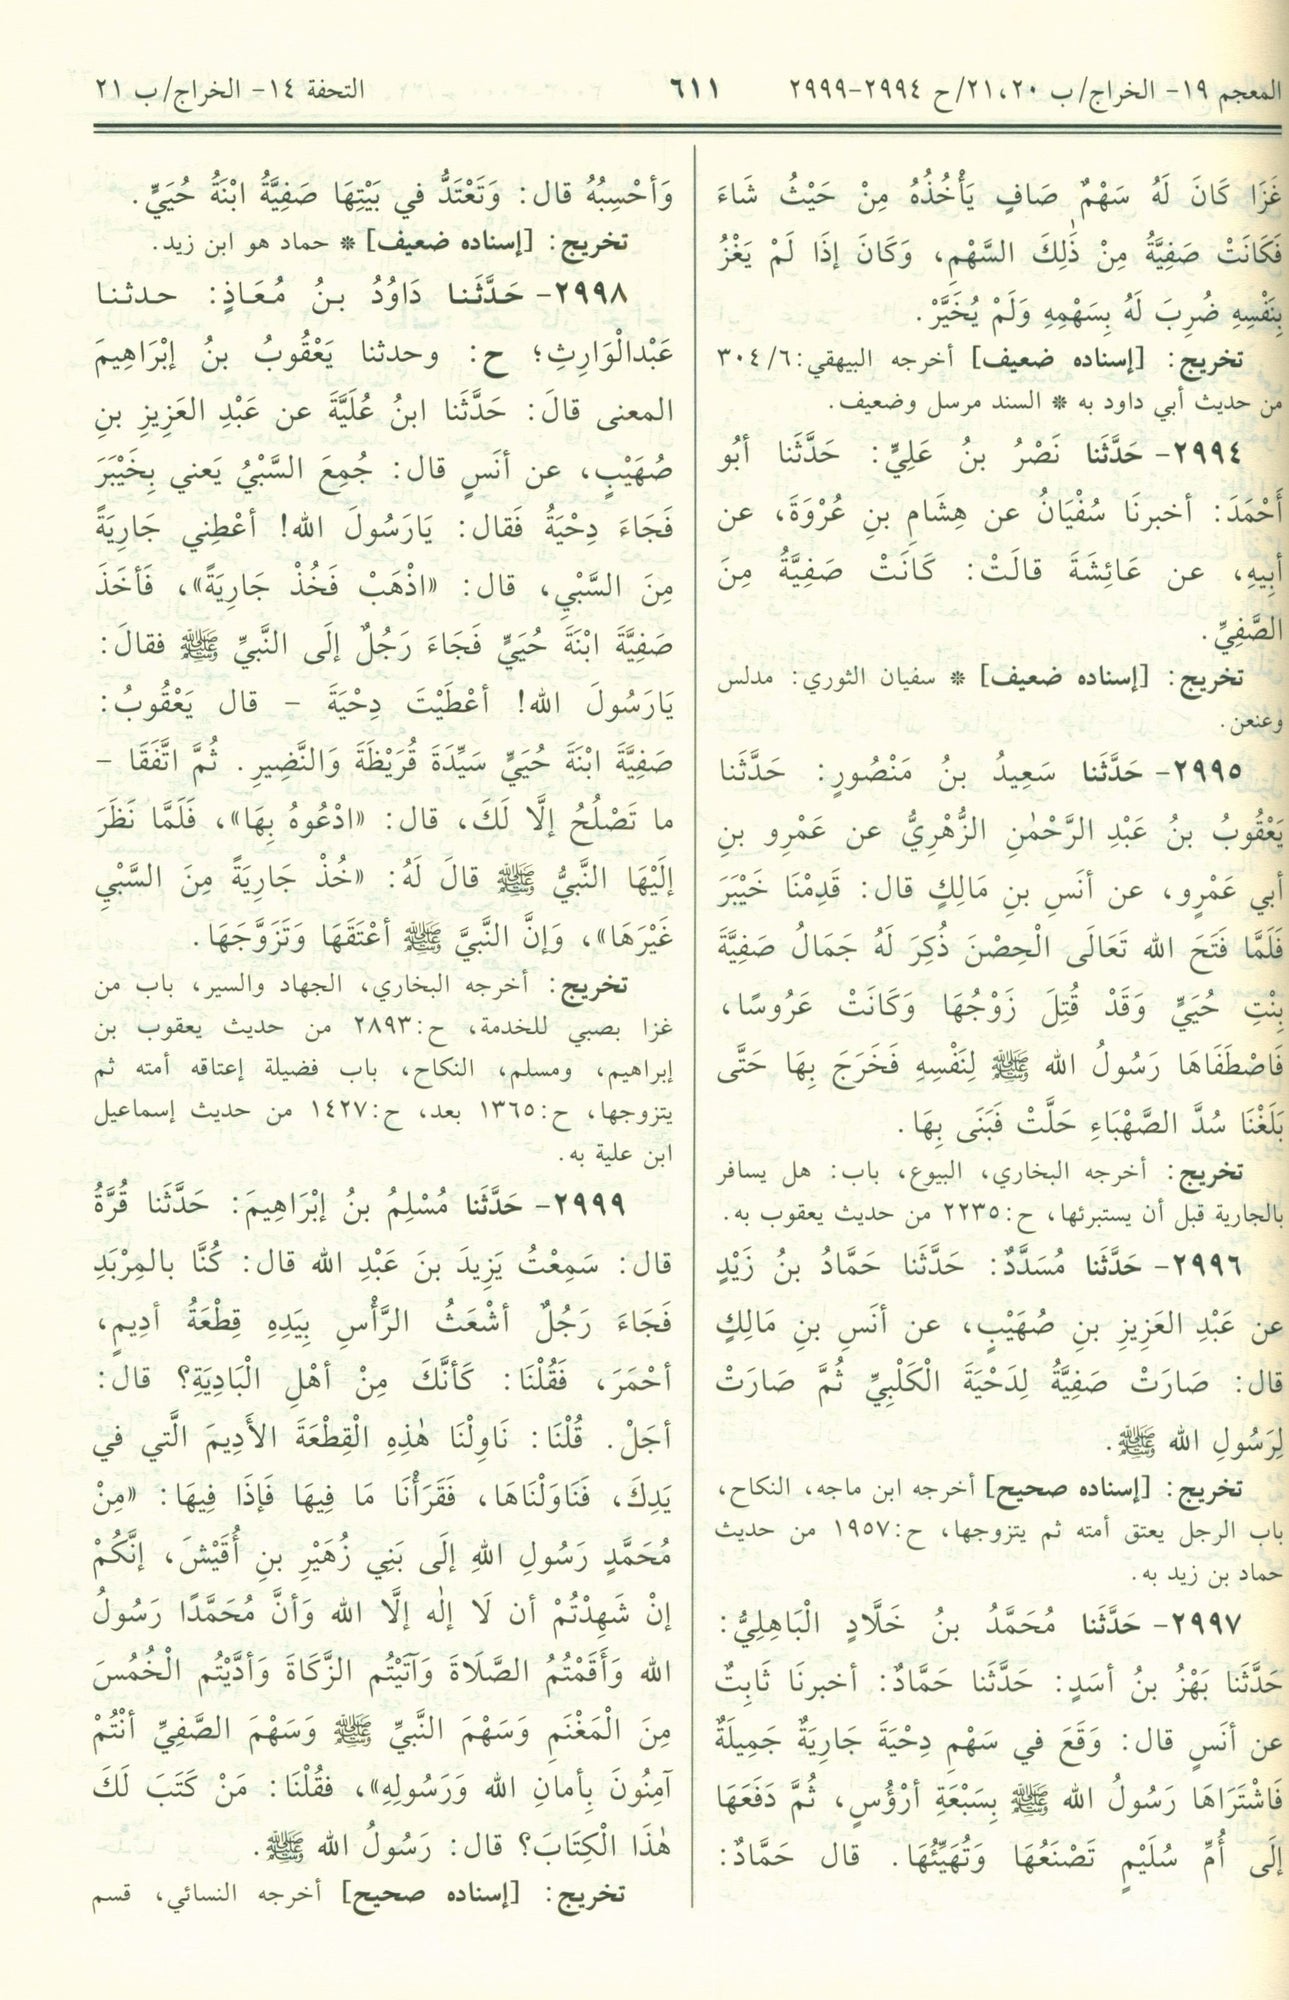 المعجم ١٩- الخراج/ ب ٢١،٢٠/ ح ٢٩٩٤-٢٩٩٩
٦١١
التحفة ١٤- الخراج/ ب ٢١
غَزَا كَانَ لَهُ سَهْمٌ صَافٍ يَأْخُذُهُ مِنْ حَيْثُ شَاءَ
فَكَانَتْ صَفِيَّةُ مِنْ ذٰلِكَ السَّهْمِ، وَكَانَ إذَا لَمْ يَغْزُ
بِنَفْسِهِ ضُرِبَ لَهُ بِسَهْمِهِ وَلَمْ يُخَيَّرْ.
تخريج: [إسناده ضعيف] أخرجه البيهقي: ٦/ ٣٠٤
من حديث أبي داود به * السند مرسل وضعيف.
٢٩٩٤- حَدَّثَنا نَصْرُ بنُ عَلِيٍّ: حَدَّثَنا أبُو
أَحْمَدَ: أخبرنَا سُفْيَانُ عن هِشَامِ بنِ عُرْوَةَ، عن
أبِيهِ، عن عَائِشَةَ قالَتْ: كَانَتْ صَفِيَّةُ مِنَ
الصَّفِيِّ.
تخريج: [إسناده ضعيف] * سفيان الثوري: مدلس
وعنعن.
٢٩٩٥- حَدَّثَنا سَعِيدُ بنُ مَنْصُورٍ: حَدَّثَنا
يَعْقُوبُ بنُ عَبْدِ الرَّحْمٰنِ الزُّهْرِيُّ عن عَمْرِو بنِ
أبي عَمْرٍو، عن أنَسِ بنِ مَالِكٍ قال: قَدِمْنَا خَيْبَرَ
فَلَمَّا فَتَحَ الله تَعَالَى الْحِصْنَ ذُكِرَ لَهُ جَمَالُ صَفِيَّةَ
بِنْتِ حُيَيٍّ وَقَدْ قُتِلَ زَوْجُهَا وَكَانَتْ عَرُوسًا،
فَاصْطَفَاهَا رَسُولُ الله ﷺ لِنَفْسِهِ فَخَرَجَ بِهَا حَتَّى
بَلَغْنَا سُدَّ الصَّهْبَاءِ حَلَّتْ فَبَنَى بِهَا.
تخريج: أخرجه البخاري، البيوع، باب: هل يسافر
بالجارية قبل أن يستبرئها، ح:٢٢٣٥ من حديث يعقوب به.
٢٩٩٦- حَدَّثَنا مُسَدَّدٌ: حَدَّثَنا حَمَّادُ بنُ زَيْدٍ
عن عَبْدِ العَزِيزِ بنِ صُهَيْبٍ، عن أنَسِ بنِ مَالِكٍ
قال: صَارَتْ صَفِيَّةُ لِدَحْيَةَ الْكَلْبِيِّ ثُمَّ صَارَتْ
لِرَسُولِ الله ﷺ.
تخريج: [إسناده صحيح] أخرجه ابن ماجه، النكاح،
باب الرجل يعتق أمته ثم يتزوجها، ح:١٩٥٧ من حديث
حماد بن زيد به.
٢٩٩٧- حَدَّثَنا مُحَمَّدُ بنُ خَلَّادٍ الْبَاهِلِيُّ:
حَدَّثَنا بَهْزُ بنُ أسَدٍ: حَدَّثَنا حَمَّادٌ: أخبرنَا ثَابِتٌ
عن أنَسٍ قال: وَقَعَ في سَهْمِ دِحْيَةَ جَارِيَةٌ جَمِيلَةٌ
فَاشْتَرَاهَا رَسُولُ الله ﷺ بِسَبْعَةِ أرْؤُسٍ، ثُمَّ دَفَعَهَا
إلَى أُمِّ سُلَيْمٍ تَصْنَعُهَا وَتُهَيِّئُهَا. قال حَمَّادٌ:
وَأحْسِبُهُ قال: وَتَعْتَدُّ في بَيْتِهَا صَفِيَّةُ ابْنَةُ حُيَيٍّ.
تخريج: [إسناده ضعيف] * حماد هو ابن زيد.
٢٩٩٨- حَدَّثَنا دَاوُدُ بنُ مُعَاذٍ: حدثنا
عَبْدالْوَارِثِ؛ ح: وحدثنا يَعْقُوبُ بنُ إبْرَاهِيمَ
المعنى قالَ: حَدَّثَنا ابنُ عُلَيَّةَ عن عَبْدِ العَزِيزِ بنِ
صُهَيْبٍ، عن أنَسٍ قال: جُمِعَ السَّبْيُ يَعني بِخَيْبَرَ
فَجَاءَ دِحْيَةُ فَقال: يَارَسُولَ الله! أعْطِني جَارِيَةً
مِنَ السَّبْيِ، قال: «اذْهَبْ فَخُذْ جَارِيَةً»، فَأخَذَ
صَفِيَّةَ ابْنَةَ حُيَيٍّ فَجَاءَ رَجُلٌ إلَى النَّبيِّ ﷺ فقالَ:
يَارَسُولَ الله! أعْطَيْتَ دِحْيَةَ - قال يَعْقُوبُ:
صَفِيَّةَ ابْنَةَ حُيَيٍّ سَيِّدَةَ قُرَيْظَةَ وَالنَّضِيرِ. ثُمَّ اتَّفَقَا -
ما تَصْلُحُ إلَّا لَكَ، قال: «ادْعُوهُ بِهَا»، فَلَمَّا نَظَرَ
إلَيْهَا النَّبيُّ ﷺ قالَ لَهُ: «خُذْ جَارِيَةً مِنَ السَّبْيِ
غَيْرَهَا»، وَإنَّ النَّبيَّ ﷺ أعْتَقَهَا وَتَزَوَّجَهَا.
تخريج: أخرجه البخاري، الجهاد والسير، باب من
غزا بصبي للخدمة، ح:٢٨٩٣ من حديث يعقوب بن
إبراهيم، ومسلم، النكاح، باب فضيلة إعتاقه أمته ثم
يتزوجها، ح:١٣٦٥ بعد، ح:١٤٢٧ من حديث إسماعيل
ابن علية به.
٢٩٩٩- حَدَّثَنا مُسْلِمُ بنُ إبْرَاهِيمَ: حَدَّثَنا قُرَّةُ
قال: سَمِعْتُ يَزِيدَ بنَ عَبْدِ الله قال: كُنَّا بالمِرْبَدِ
فَجَاءَ رَجُلٌ أشْعَثُ الرَّأْسِ بِيَدِهِ قِطْعَةُ أدِيمٍ،
أحْمَرَ، فَقُلْنَا: كَأنَّكَ مِنْ أهْلِ الْبَادِيَةِ؟ قال:
أجَلْ. قُلْنَا: نَاوِلْنَا هٰذِهِ الْقِطْعَةَ الأَدِيمَ الَّتي في
يَدِكَ، فَنَاوَلْنَاهَا، فَقَرَأْنَا مَا فِيهَا فَإذَا فِيهَا: «مِنْ
مُحَمَّدٍ رَسُولِ اللهِ إلَى بَنِي زُهَيْرِ بنِ أُقَيْشَ، إنَّكُمْ
إنْ شَهِدْتُمْ أن لَا إلٰه إلَّا الله وَأنَّ مُحَمَّدًا رَسُولُ
الله وَأَقَمْتُمُ الصَّلَاةَ وَآتَيْتُم الزَّكَاةَ وَأدَّيْتُم الْخُمُسَ
مِنَ الْمَغْنَمِ وَسَهْمَ النَّبيِّ ﷺ وَسَهْمَ الصَّفِيِّ أنْتُمْ
آمِنُونَ بِأمانِ الله وَرَسُولِهِ»، فقُلْنَا: مَنْ كَتَبَ لَكَ
هٰذَا الْكِتَابَ؟ قال: رَسُولُ الله ﷺ.
تخريج: [إسناده صحيح] أخرجه النسائي، قسم